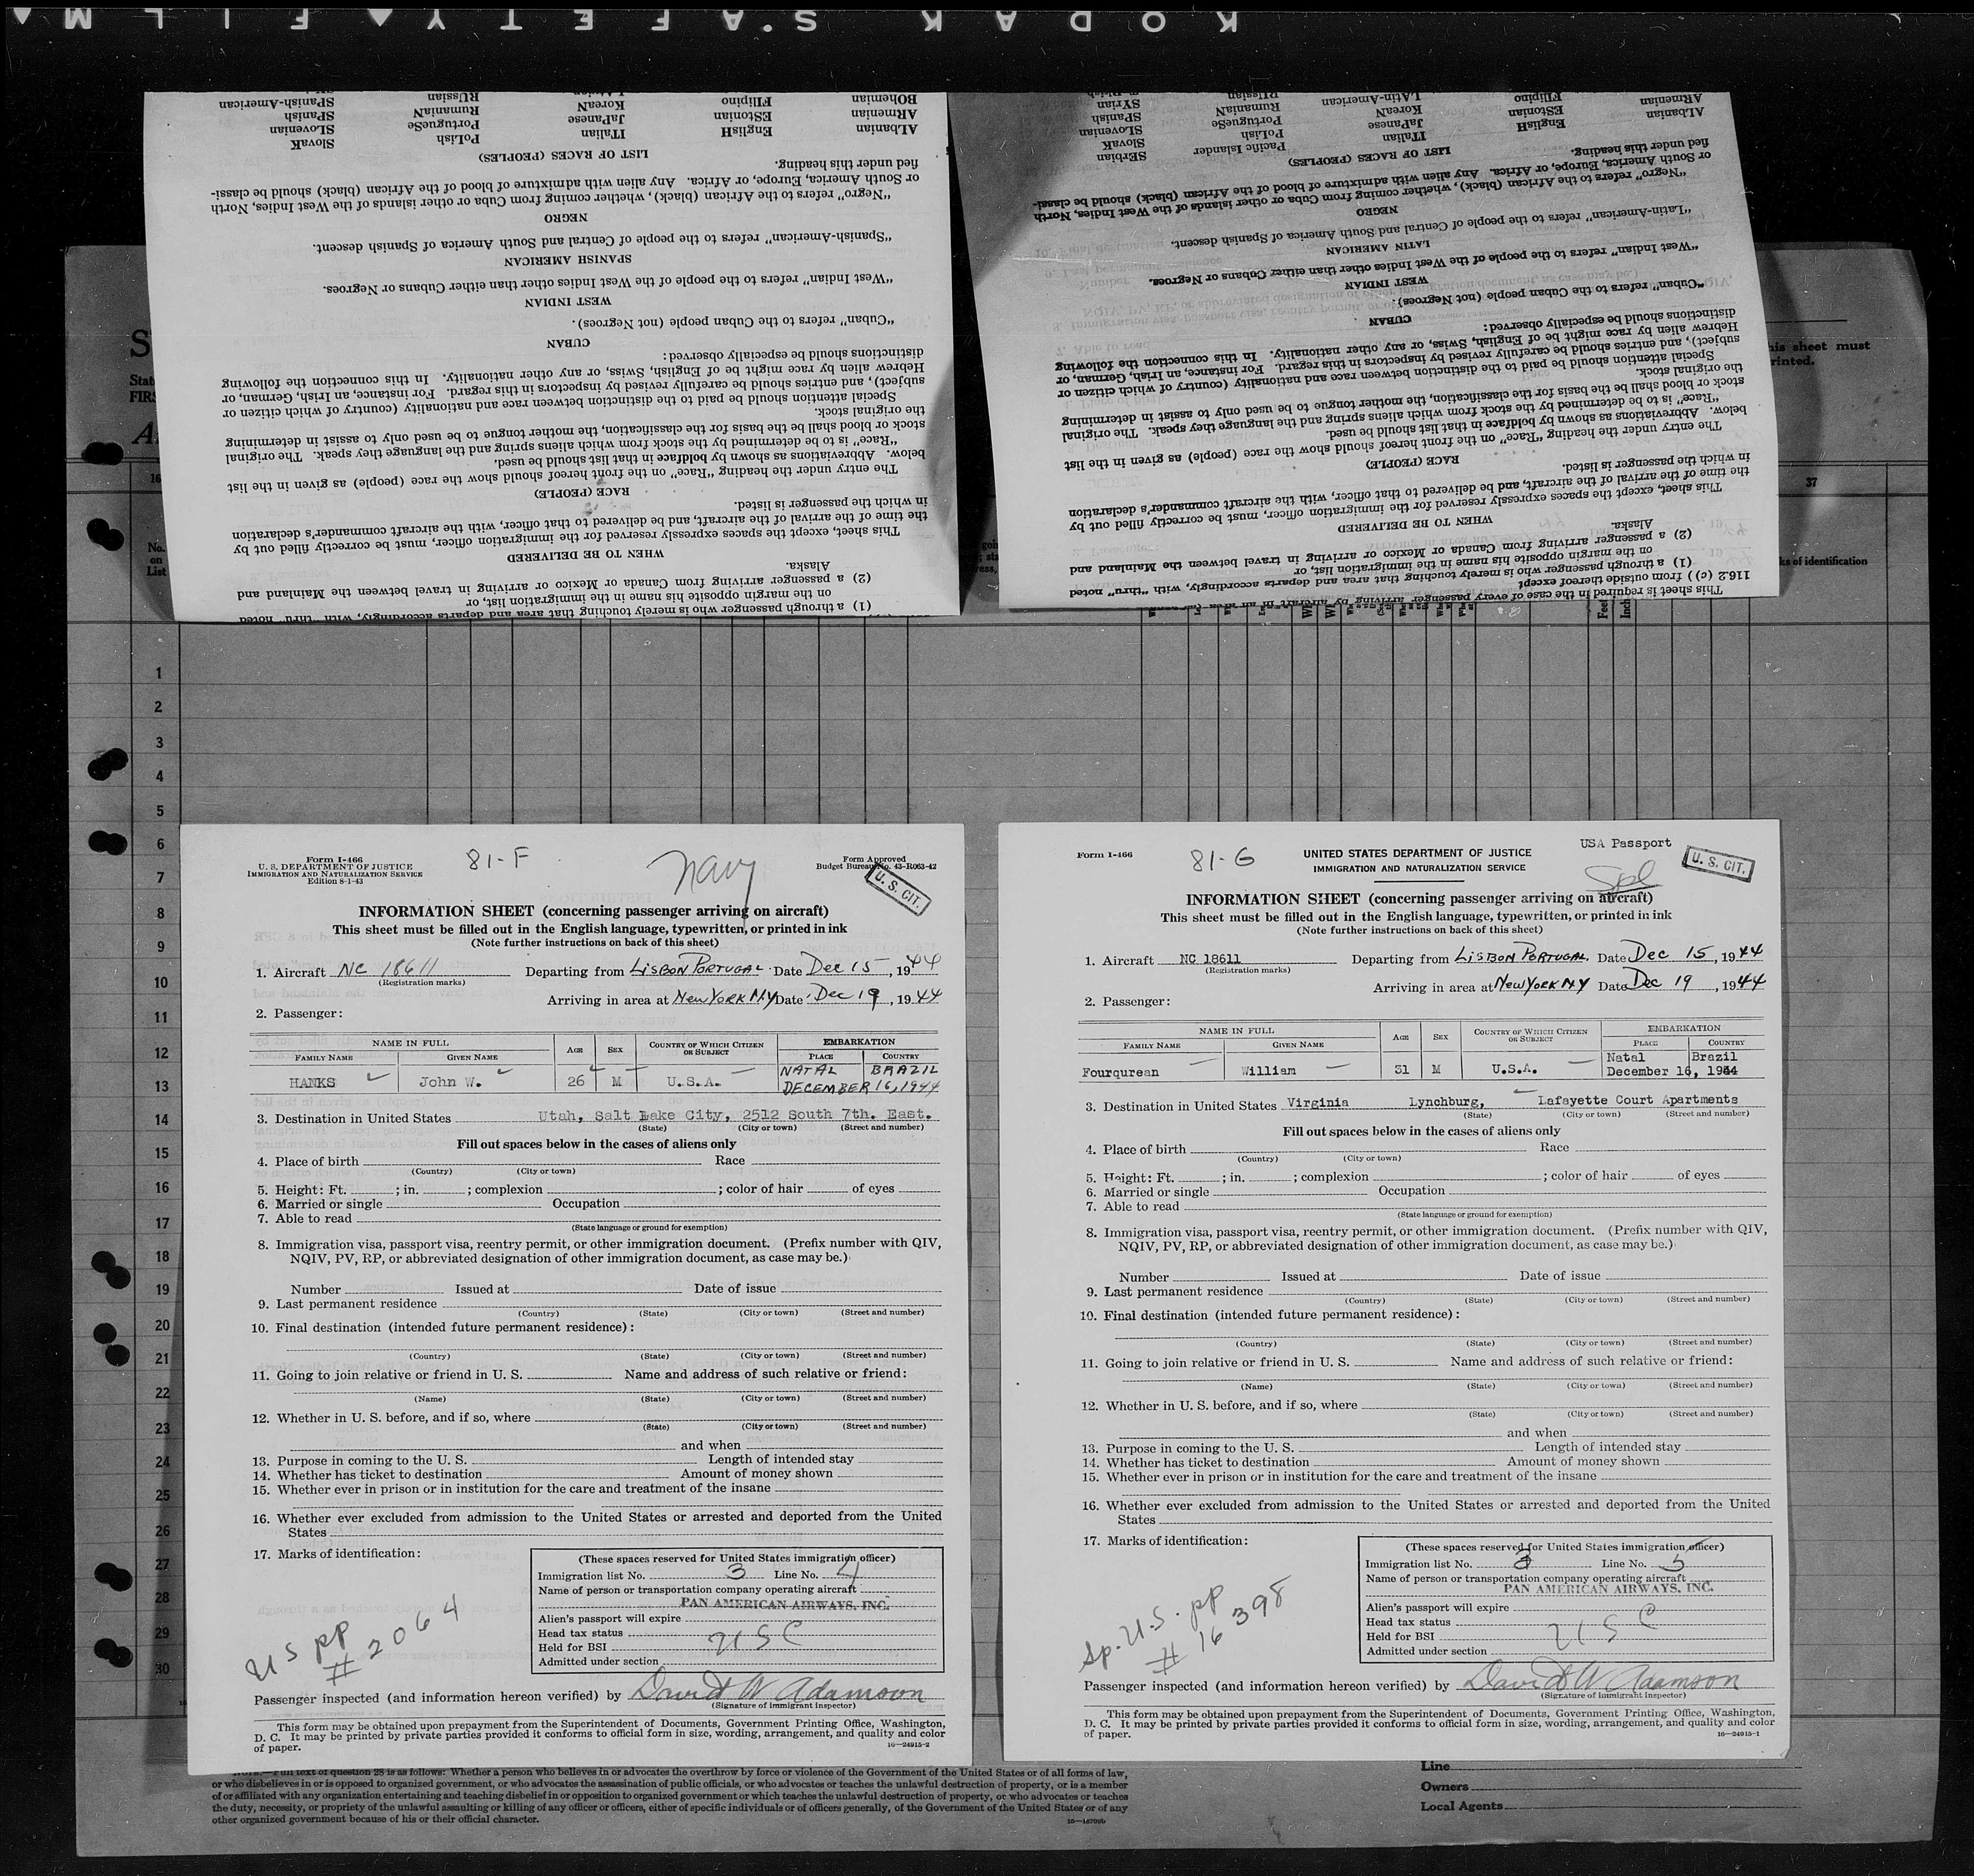 KODAK S'AFETY FILM
SLovaK
PoLisH
ITalian
EngLisH
ALbanian
SLOVenian
PortugueSe
JaPanese
EStonian
ARmenian
SPaNish
RumaniaN
KoreaN
FIlipino
BOHemian
SPanish-American
RUssian
LIST OF RACES (PEOPLES)
fied under this heading.
or South America, Europe, or Africa. Any alien with admixture of blood of the African (black) should be classi-
"Negro" refers to the African (black), whether coming from Cuba or other islands of the West Indies, North
NEGRO
"Spanish-American" refers to the people of Central and South America of Spanish descent.
SPANISH AMERICAN
"West Indian" refers to the people of the West Indies other than either Cubans or Negroes.
WEST INDIAN
"Cuban" refers to the Cuban people (not Negroes).
CUBAN
distinctions should be especially observed:
Hebrew alien by race might be of English, Swiss, or any other nationality. In this connection the following
subject), and entries should be carefully revised by inspectors in this regard. For instance, an Irish, German, or
Special attention should be paid to the distinction between race and nationality (country of which citizen or
the original stock.
stock or blood shall be the basis for the classification, the mother tongue to be used only to assist in determining
"Race" is to be determined by the stock from which aliens spring and the language they speak. The original
below. Abbreviations as shown by boldface in that list should be used.
The entry under the heading "Race" on the front hereof should show the race (people) as given in the list
RACE (PEOPLE)
in which the passenger is listed.
the time of the arrival of the aircraft, and be delivered to that officer, with the aircraft commander's declaration
This sheet, except the spaces expressly reserved for the immigration officer, must be correctly filled out by
WHEN TO BE DELIVERED
Alaska.
(2) a passenger arriving from Canada or Mexico or arriving in travel between the Mainland and
on the margin opposite his name in the immigration list, or
(1) a through passenger who is merely touching that area and departs accordingly, with "thru" noted
SErbian
Pacific Islander
ITalian
EngLisH
ALbanian
SLovaK
PoLisH
JaPanese
EStonian
ARmenian
SLOVenian
PortugueSe
KoreaN
FIlipino
SPaNish
RumaniaN
LAtin-American
SYrian
RUssian
LIST OF RACES (PEOPLES)
fied under this heading.
or South America, Europe, or Africa. Any alien with admixture of blood of the African (black) should be classi-
"Negro" refers to the African (black), whether coming from Cuba or other islands of the West Indies, North
NEGRO
"Latin-American" refers to the people of Central and South America of Spanish descent.
LATIN AMERICAN
"West Indian" refers to the people of the West Indies other than either Cubans or Negroes.
WEST INDIAN
"Cuban" refers to the Cuban people (not Negroes).
CUBAN
distinctions should be especially observed:
Hebrew alien by race might be of English, Swiss, or any other nationality. In this connection the following
subject), and entries should be carefully revised by inspectors in this regard. For instance, an Irish, German, or
Special attention should be paid to the distinction between race and nationality (country of which citizen or
the original stock.
stock or blood shall be the basis for the classification, the mother tongue to be used only to assist in determining
"Race" is to be determined by the stock from which aliens spring and the language they speak. The original
below. Abbreviations as shown by boldface in that list should be used.
The entry under the heading "Race" on the front hereof should show the race (people) as given in the list
RACE (PEOPLE)
in which the passenger is listed.
the time of the arrival of the aircraft, and be delivered to that officer, with the aircraft commander's declaration
This sheet, except the spaces expressly reserved for the immigration officer, must be correctly filled out by
WHEN TO BE DELIVERED
Alaska.
(2) a passenger arriving from Canada or Mexico or arriving in travel between the Mainland and
on the margin opposite his name in the immigration list, or
(1) a through passenger who is merely touching that area and departs accordingly, with "thru" noted
116.2 (c)) from outside thereof except
This sheet is required in the case of every passenger arriving by aircraft in an area
his sheet must
rinted.
37
ks of identification
No.
on
List
1
2
3
4
5
6
7
8
9
10
11
12
13
14
15
16
17
18
19
20
21
22
23
24
25
26
27
28
29
30
Form I-466
U. S. DEPARTMENT OF JUSTICE
IMMIGRATION AND NATURALIZATION SERVICE
Edition 8-1-43
81-F
Navy
Form Approved
Budget Bureau No. 43-R063-42
U. S. CIT.
INFORMATION SHEET (concerning passenger arriving on aircraft)
This sheet must be filled out in the English language, typewritten, or printed in ink
(Note further instructions on back of this sheet)
1. Aircraft NC 18611 Departing from LISBON PORTUGAL Date Dec 15, 1944
(Registration marks)
Arriving in area at New York N.Y Date Dec 19, 1944
2. Passenger:
NAME IN FULL AGE SEX COUNTRY OF WHICH CITIZEN OR SUBJECT EMBARKATION
FAMILY NAME GIVEN NAME PLACE COUNTRY
HANKS John W. 26 M U.S.A. NATAL BRAZIL
DECEMBER 16, 1944
3. Destination in United States Utah, Salt Lake City, 2512 South 7th. East.
(State) (City or town) (Street and number)
Fill out spaces below in the cases of aliens only
4. Place of birth Race
(Country) (City or town)
5. Height: Ft. ; in. ; complexion ; color of hair of eyes
6. Married or single Occupation
7. Able to read
(State language or ground for exemption)
8. Immigration visa, passport visa, reentry permit, or other immigration document. (Prefix number with QIV,
NQIV, PV, RP, or abbreviated designation of other immigration document, as case may be.)
Number Issued at Date of issue
9. Last permanent residence
(Country) (State) (City or town) (Street and number)
10. Final destination (intended future permanent residence):
(Country) (State) (City or town) (Street and number)
11. Going to join relative or friend in U. S. Name and address of such relative or friend:
(Name) (State) (City or town) (Street and number)
12. Whether in U. S. before, and if so, where
(State) (City or town) (Street and number)
and when
13. Purpose in coming to the U. S. Length of intended stay
14. Whether has ticket to destination Amount of money shown
15. Whether ever in prison or in institution for the care and treatment of the insane
16. Whether ever excluded from admission to the United States or arrested and deported from the United
States
17. Marks of identification:
(These spaces reserved for United States immigration officer)
Immigration list No. 3 Line No. 4
Name of person or transportation company operating aircraft
PAN AMERICAN AIRWAYS, INC.
Alien's passport will expire
Head tax status
Held for BSI USC
Admitted under section
US PP
# 2064
Passenger inspected (and information hereon verified) by David W Adamson
(Signature of immigrant inspector)
This form may be obtained upon prepayment from the Superintendent of Documents, Government Printing Office, Washington,
D. C. It may be printed by private parties provided it conforms to official form in size, wording, arrangement, and quality and color
of paper.
16—24915-2
Form I-466
81-G
UNITED STATES DEPARTMENT OF JUSTICE
IMMIGRATION AND NATURALIZATION SERVICE
USA Passport
Spl
U. S. CIT.
INFORMATION SHEET (concerning passenger arriving on aircraft)
This sheet must be filled out in the English language, typewritten, or printed in ink
(Note further instructions on back of this sheet)
1. Aircraft NC 18611 Departing from LISBON PORTUGAL Date Dec 15, 1944
(Registration marks)
Arriving in area at New York NY Date Dec 19, 1944
2. Passenger:
NAME IN FULL AGE SEX COUNTRY OF WHICH CITIZEN OR SUBJECT EMBARKATION
FAMILY NAME GIVEN NAME PLACE COUNTRY
Fourqurean William 31 M U.S.A. Natal Brazil
December 16, 1944
3. Destination in United States Virginia Lynchburg, Lafayette Court Apartments
(State) (City or town) (Street and number)
Fill out spaces below in the cases of aliens only
4. Place of birth Race
(Country) (City or town)
5. Height: Ft. ; in. ; complexion ; color of hair of eyes
6. Married or single Occupation
7. Able to read
(State language or ground for exemption)
8. Immigration visa, passport visa, reentry permit, or other immigration document. (Prefix number with QIV,
NQIV, PV, RP, or abbreviated designation of other immigration document, as case may be.)
Number Issued at Date of issue
9. Last permanent residence
(Country) (State) (City or town) (Street and number)
10. Final destination (intended future permanent residence):
(Country) (State) (City or town) (Street and number)
11. Going to join relative or friend in U. S. Name and address of such relative or friend:
(Name) (State) (City or town) (Street and number)
12. Whether in U. S. before, and if so, where
(State) (City or town) (Street and number)
and when
13. Purpose in coming to the U. S. Length of intended stay
14. Whether has ticket to destination Amount of money shown
15. Whether ever in prison or in institution for the care and treatment of the insane
16. Whether ever excluded from admission to the United States or arrested and deported from the United
States
17. Marks of identification:
(These spaces reserved for United States immigration officer)
Immigration list No. 3 Line No. 5
Name of person or transportation company operating aircraft
PAN AMERICAN AIRWAYS, INC.
Alien's passport will expire
Head tax status
Held for BSI USC
Admitted under section
Sp. U.S. PP
# 16398
Passenger inspected (and information hereon verified) by David W Adamson
(Signature of immigrant inspector)
This form may be obtained upon prepayment from the Superintendent of Documents, Government Printing Office, Washington,
D. C. It may be printed by private parties provided it conforms to official form in size, wording, arrangement, and quality and color
of paper.
16—24915-1
NOTE.—Full text of question 28 is as follows: Whether a person who believes in or advocates the overthrow by force or violence of the Government of the United States or of all forms of law,
or who disbelieves in or is opposed to organized government, or who advocates the assassination of public officials, or who advocates or teaches the unlawful destruction of property, or is a member
of or affiliated with any organization entertaining and teaching disbelief in or opposition to organized government or which teaches the unlawful destruction of property, or who advocates or teaches
the duty, necessity, or propriety of the unlawful assaulting or killing of any officer or officers, either of specific individuals or of officers generally, of the Government of the United States or of any
other organized government because of his or their official character.
Line
Owners
Local Agents